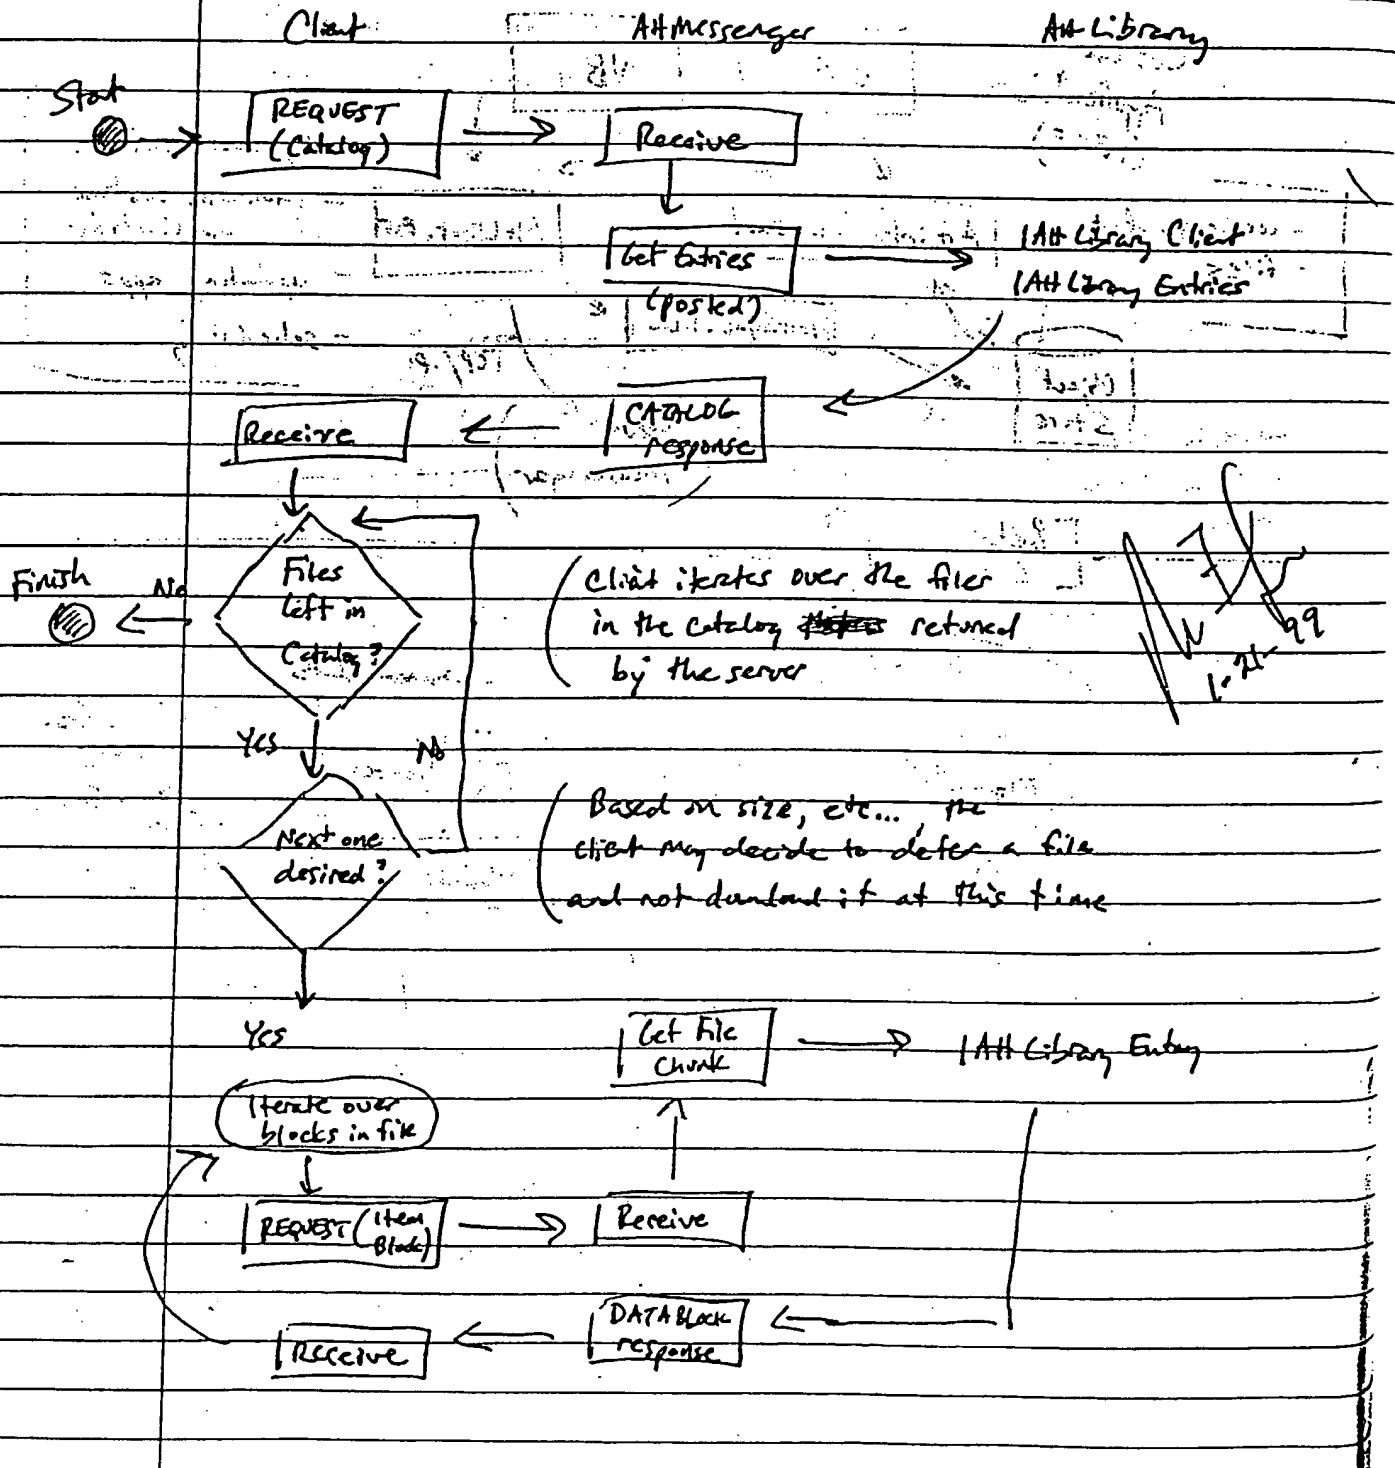 Client AHMessenger AH Library
Start
REQUEST
(Catalog)
Receive
Get Entries
(posted)
IAH Library Client
IAH Library Entries
CATALOG
response
Receive
Files
left in
Catalog?
Finish
No
Client iterates over the files
in the catalog returned
by the server
1-21-99
Yes
No
Next one
desired?
Based on size, etc..., the
client may decide to defer a file
and not download it at this time
Yes
Get File
Chunk
IAH Library Entry
Iterate over
blocks in file
REQUEST (Item
Block)
Receive
DATABlock
response
Receive